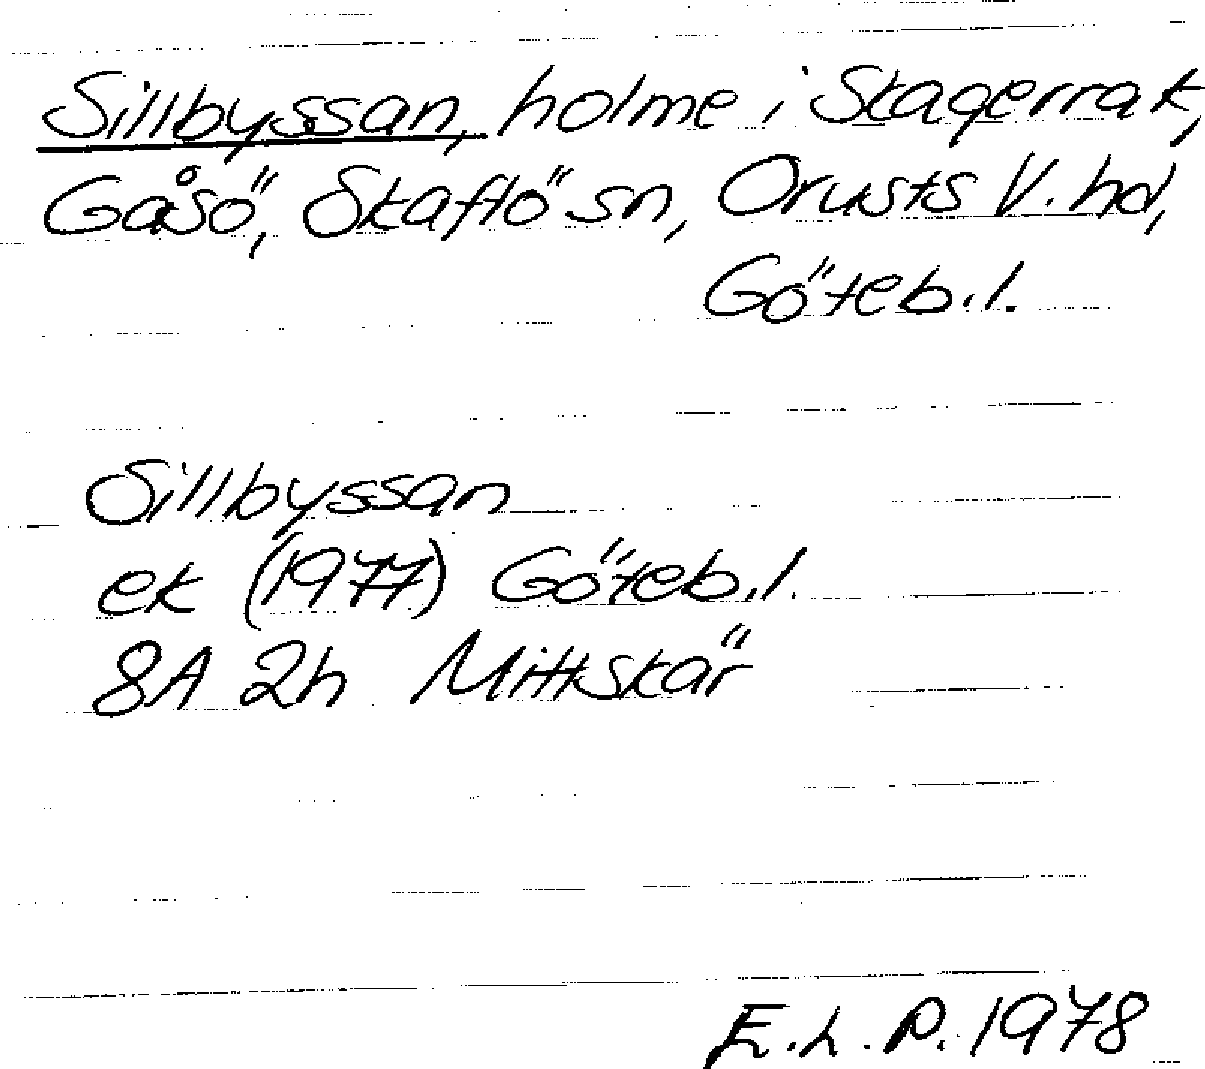 Sillbyssan, holme i Skagerrak,
Gåsö, Skaftö sn, Orusts V. hd,
Göteb.l.
Sillbyssan
ek (1977) Göteb.l.
8A 2h Mittskär
E.L.P. 1978